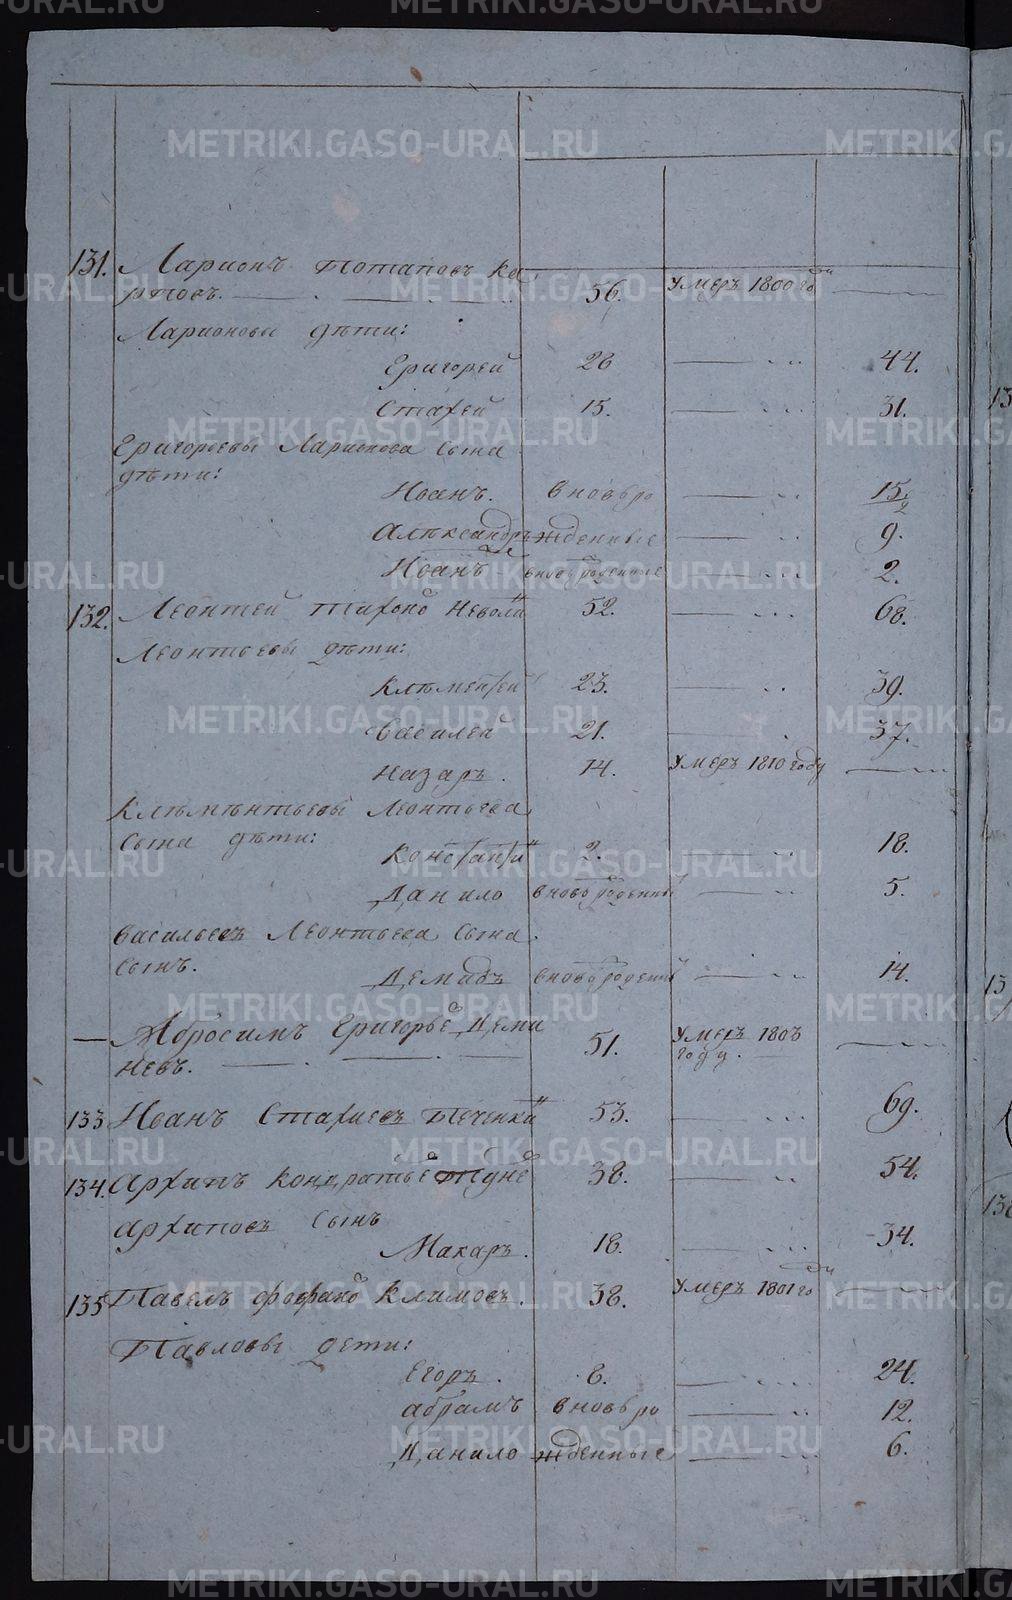 131. Ларионъ Потаповъ Ка
ртовъ. 56. Умеръ 1800 году
Ларионовы дѣти:
Григорей 28 44.
Стафей 15. 31.
Григорьевы Ларионова сына
дѣти:
Иванъ. вновь ро 15 1/2
Александръ жденные 9.
Иванъ 2й вновь рожденные 2.
132. Леонтей Пафоно Неволи 52. 68.
Леонтьевы дѣти:
Клѣментей 23. 39.
Василей 21. 37.
Назаръ. 14. Умеръ 1810 году
Клѣмѣнтьевы Леонтьева
сына дѣти:
Констянти 2. 18.
Данило вновь рожденный 5.
Васильевъ Леонтьева сына
сынъ.
Демидъ вновь рожденный 14.
Абросимъ Григорьево Деми
невъ. 51. Умеръ 1808
году.
133 Иванъ Стафиевъ Печенки 53. 69.
134. Архипъ Кондратьево 38. 54.
Архиповъ сынъ
Макаръ. 18. 34.
135 Павелъ Феофано Климовъ. 38. Умеръ 1801 году
Павловы дети:
Егоръ. 8. 24.
Абрамъ вновь ро 12.
Данило жденные 6.
METRIKI.GASO-URAL.RU